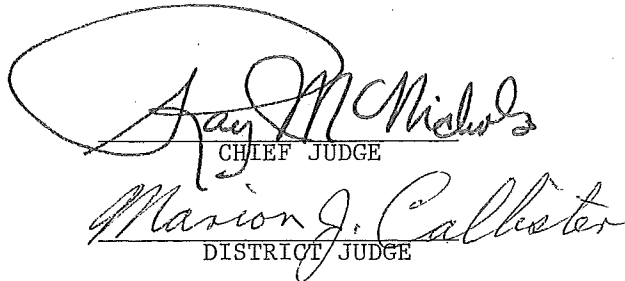 Ray McNichols
CHIEF JUDGE
Marion J. Callister
DISTRICT JUDGE